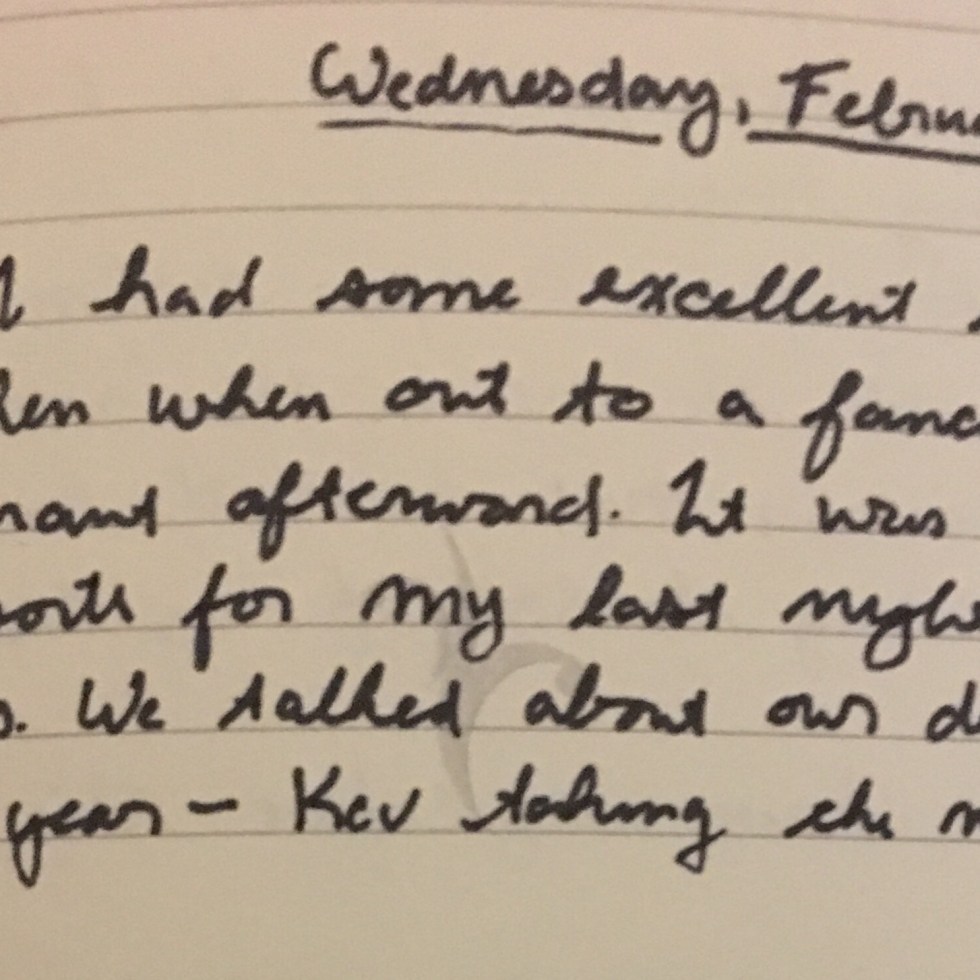 Wednesday, Febru
I had some excellent
en when out to a fanc
rant afterward. It was
for my last nigh
. We talked about our d
year – Kev taking the